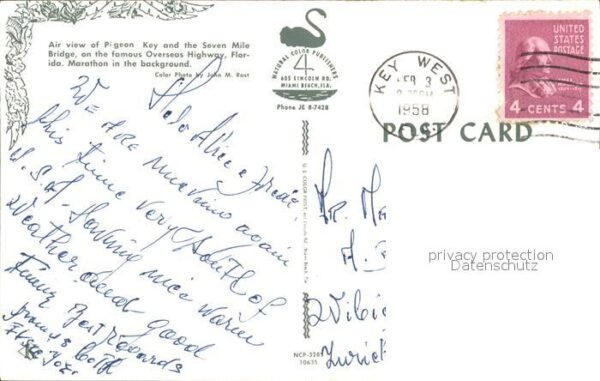 Air view of Pigeon Key and the Seven Mile
Bridge, on the famous Overseas Highway, Flor-
ida. Marathon in the background.
Color Photo by John M. Rast
NATURAL COLOR PUBLISHERS
4
605 LINCOLN RD.
MIAMI BEACH, FLA.
Phone JE 8-7428
KEY WEST
FEB 3
1958
UNITED
STATES
POSTAGE
4 CENTS 4
POST CARD
Helo Alice & Fredi,
WE ARE again
this time very South of
U.S.A. Having nice warm
Weather and good
Time Best regards
from us both
Mr.
Zürich
NCP-3205
10635
privacy protection
Datenschutz